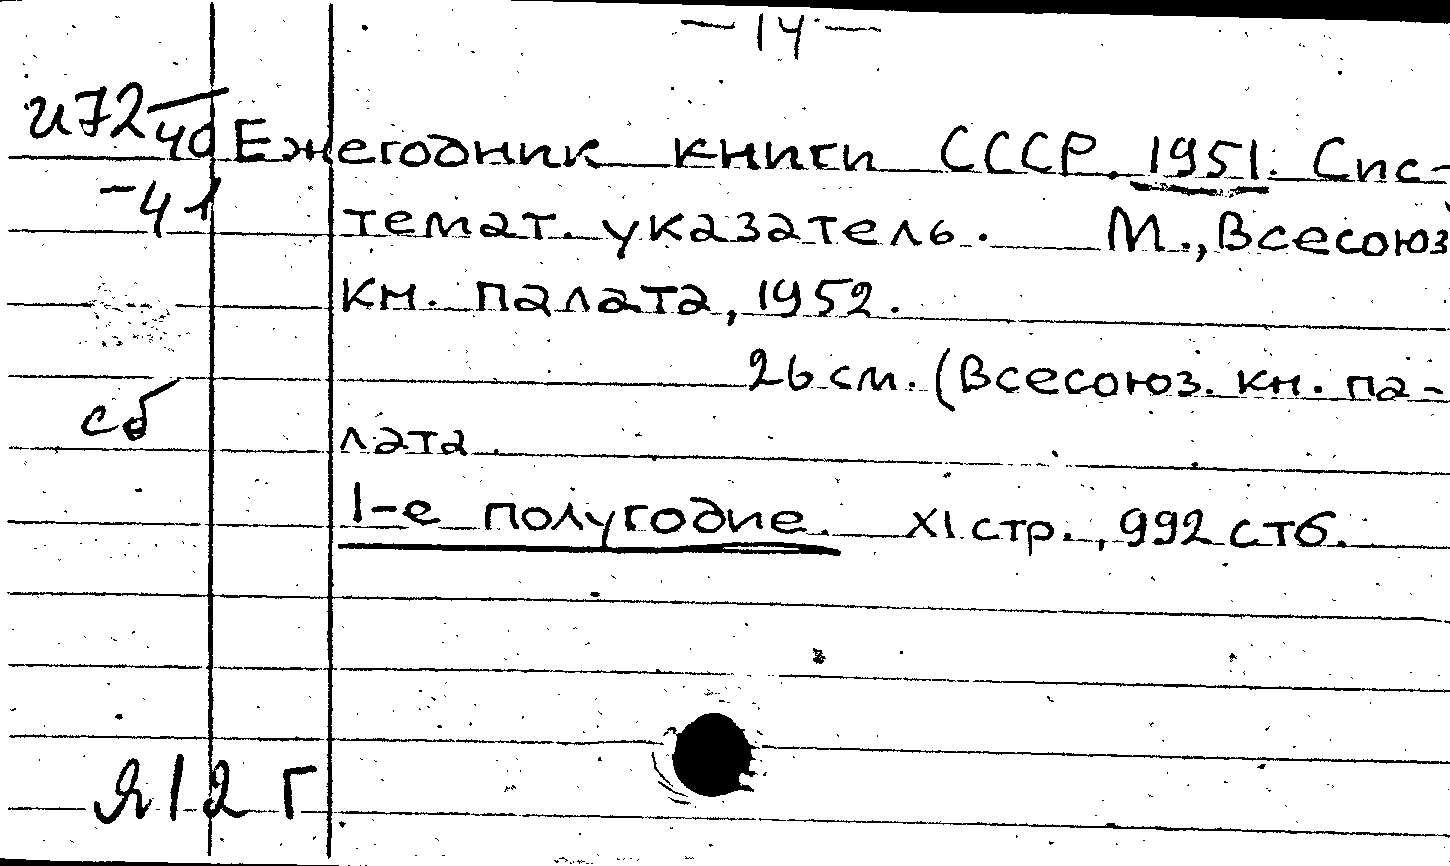 — 14 —
И72 40 Ежегодник книги СССР. 1951. Сис-
-41 темат. указатель. М., Всесоюз
кн. палата, 1952.
26 см. (Всесоюз. кн. па-
сб лата.
1-е полугодие. XI стр., 992 стб.
Я12 Г